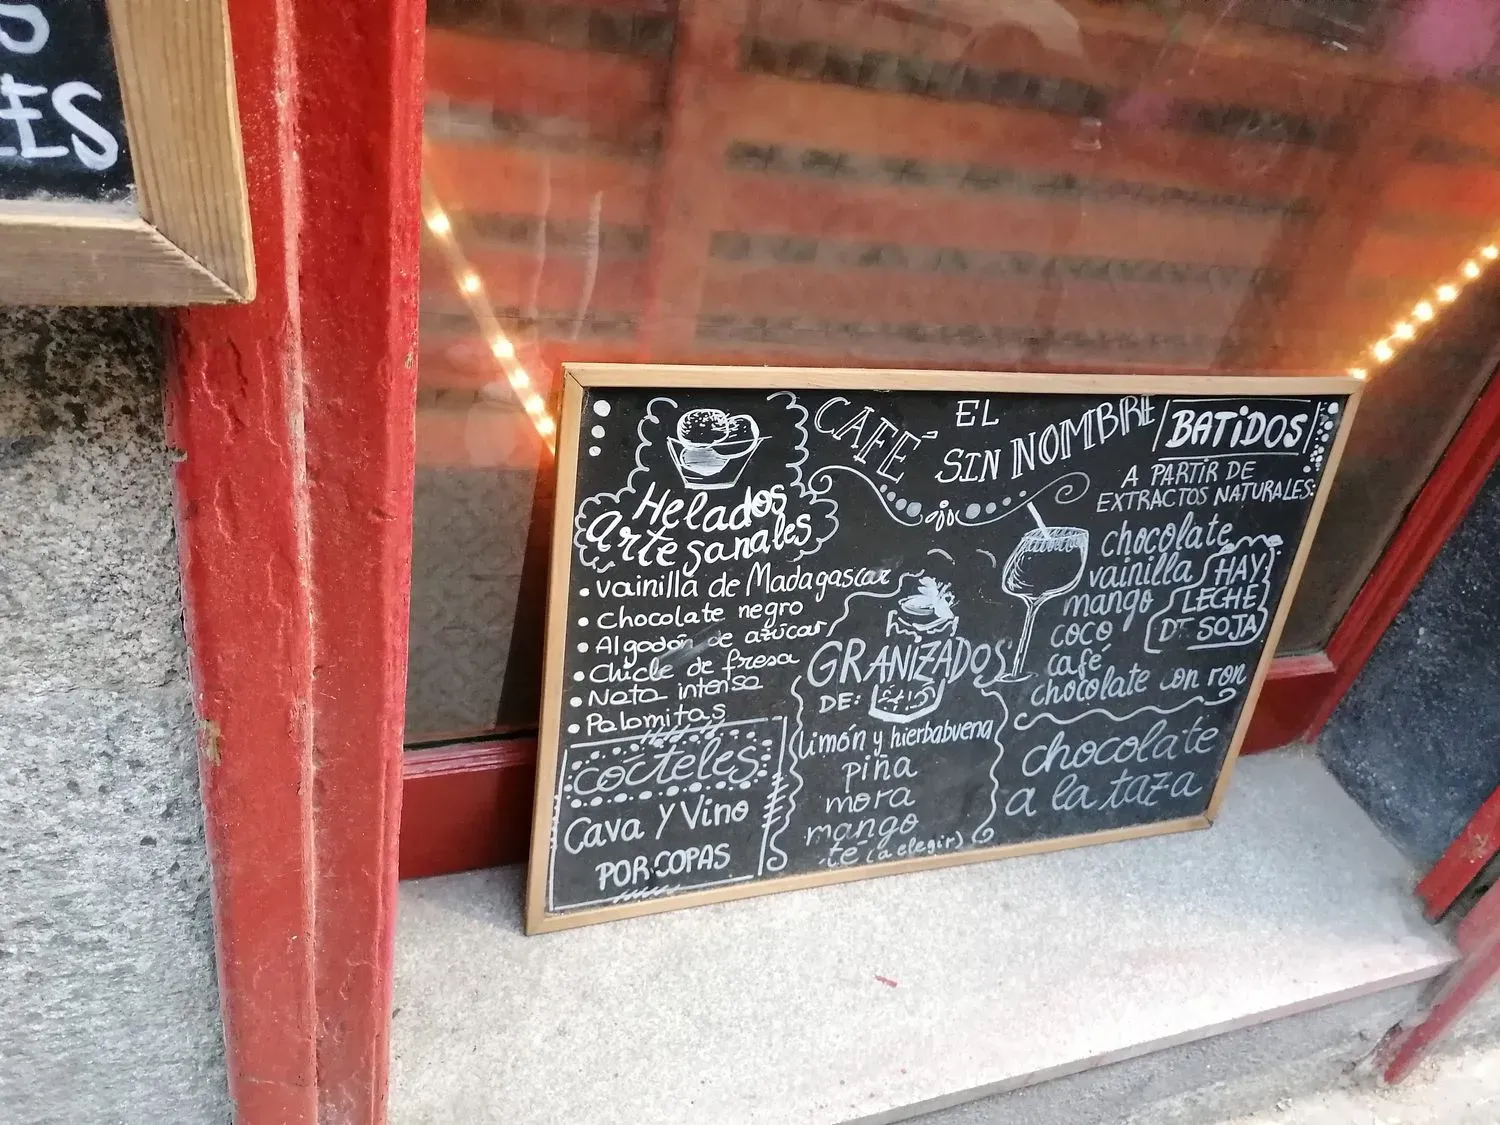 S
ES
CAFÉ EL SIN NOMBRE
Helados
artesanales
• vainilla de Madagascar
• chocolate negro
• Algodón de azúcar
• Chicle de fresa
• Nata intensa
• Palomitas
cócteles
Cava y Vino
POR COPAS
GRANIZADOS
DE:
limón y hierbabuena
piña
mora
mango
té (a elegir)
BATIDOS
A PARTIR DE
EXTRACTOS NATURALES:
chocolate
vainilla
mango
coco
café
chocolate con ron
HAY
LECHE
DE SOJA
chocolate
a la taza